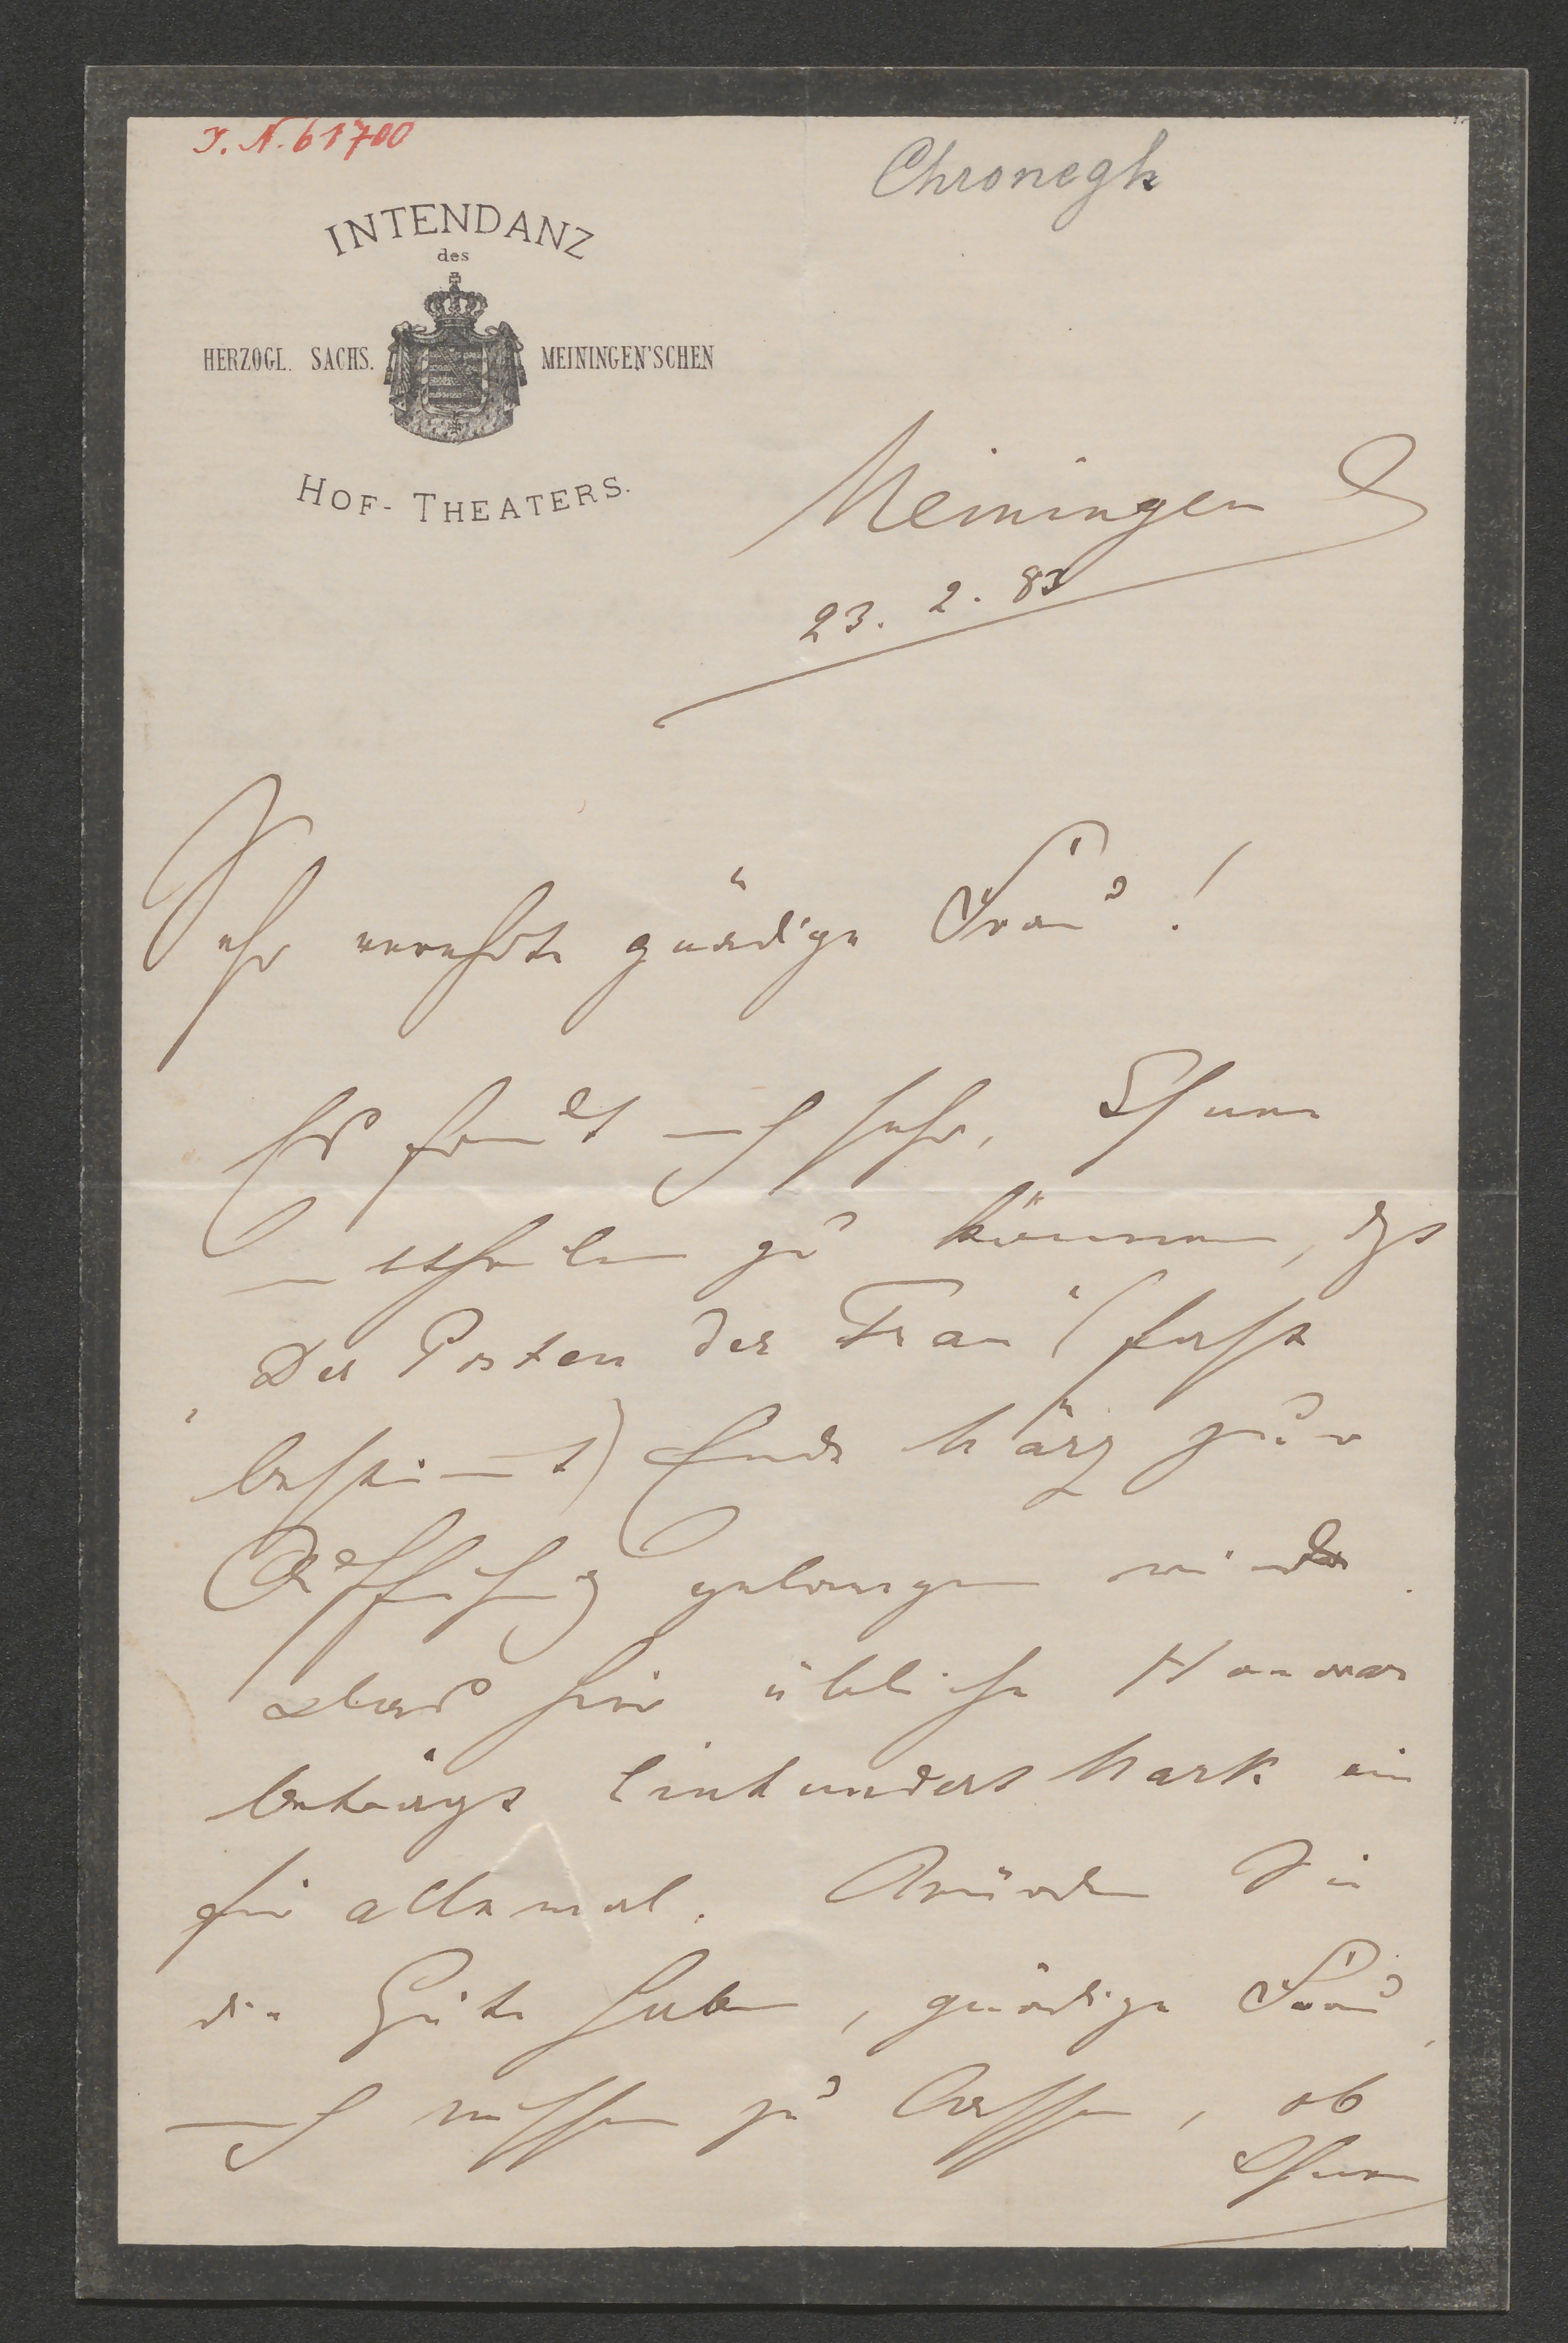 I. N. 61700
Chronegk
INTENDANZ
des
HERZOGL. SACHS. MEININGEN'SCHEN
HOF-THEATERS.
Meiningen
23. 2. 83
Sehr verehrte gnädige Frau!
Es freut mich sehr, Ihnen
mittheilen zu können, dß
"Der Posten der Frau" (fest
bestimt) Ende März zur
Aufführung gelangen wird.
Das hier übliche Honorar
beträgt Einhundert Mark ein
für allemal. Würden Sie
die Güte haben, gnädige Frau,
mich wissen zu lassen, ob
Ihnen